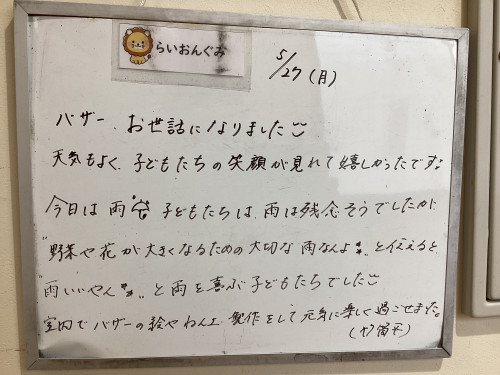 らいおんぐみ
5/27 (月)
バザー、お世話になりました
天気もよく、子どもたちの笑顔が見れて嬉しかったです
今日は雨 子どもたちは、雨は残念そうでしたが
"野菜や花が大きくなるための大切な雨なんよ" と伝えると
"雨いいやん" と雨を喜ぶ子どもたちでした
室内でバザーの絵やねん土 製作をして元気に楽しく過ごせました。